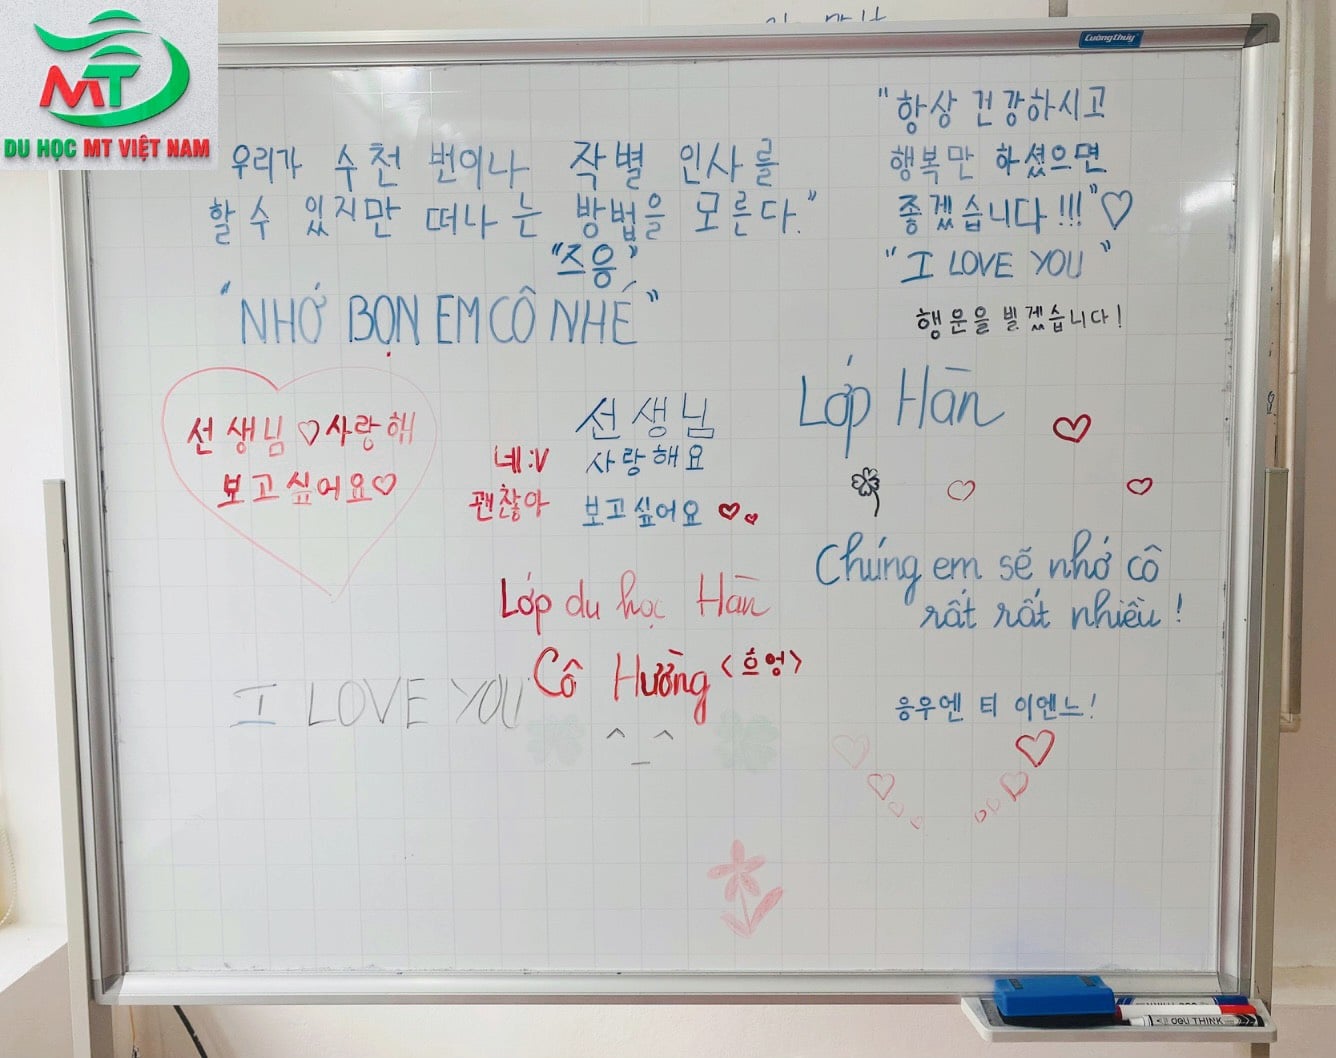 MT
DU HỌC MT VIỆT NAM
CườngThủy
우리가 수천 번이나 작별 인사를
할 수 있지만 떠나는 방법을 모른다."
"즈응"
"NHỚ BỌN EM CÔ NHÉ"
"항상 건강하시고
행복만 하셨으면
좋겠습니다!!!"♡
"I LOVE YOU"
행운을 빌겠습니다!
선생님♡사랑해
보고싶어요♡
선생님
네:V 사랑해요
괜찮아 보고싶어요
Lớp Hàn
Chúng em sẽ nhớ cô
rất rất nhiều!
Lớp du học Hàn
Cô Hường <흐엉>
I LOVE YOU
^_^
응우엔 티 이엔느!
OGU THINK